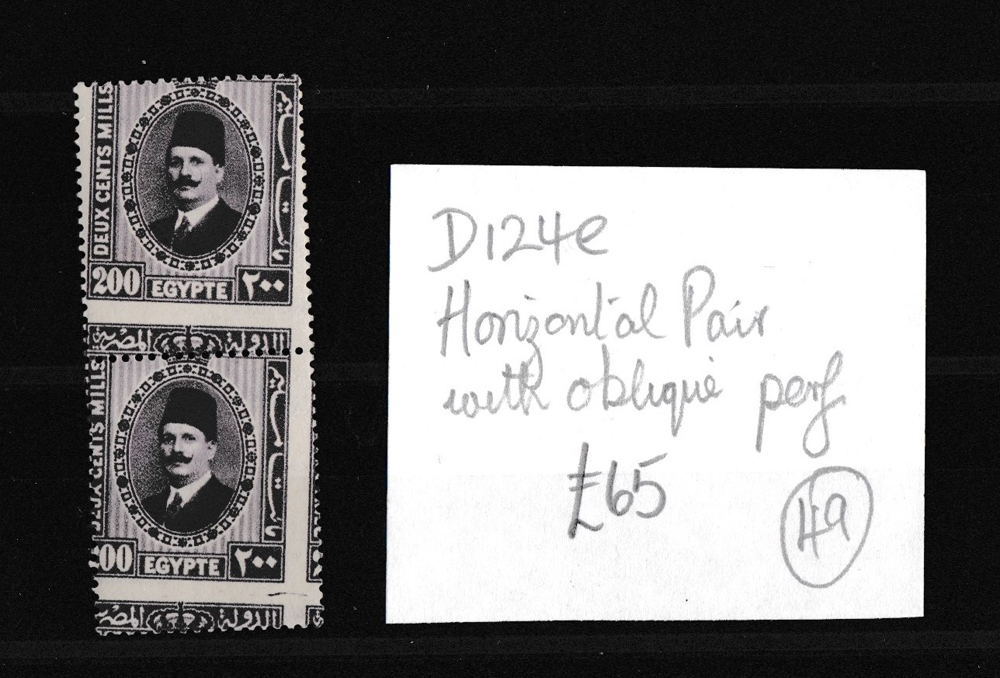 DEUX CENTS MILLS
200 EGYPTE ٢٠٠
الدولة المصرية
EUX CENTS MILLS
00 EGYPTE ٢٠٠
الدولة المصرية
D124e
Horizontal Pair
with oblique perf
£65
49